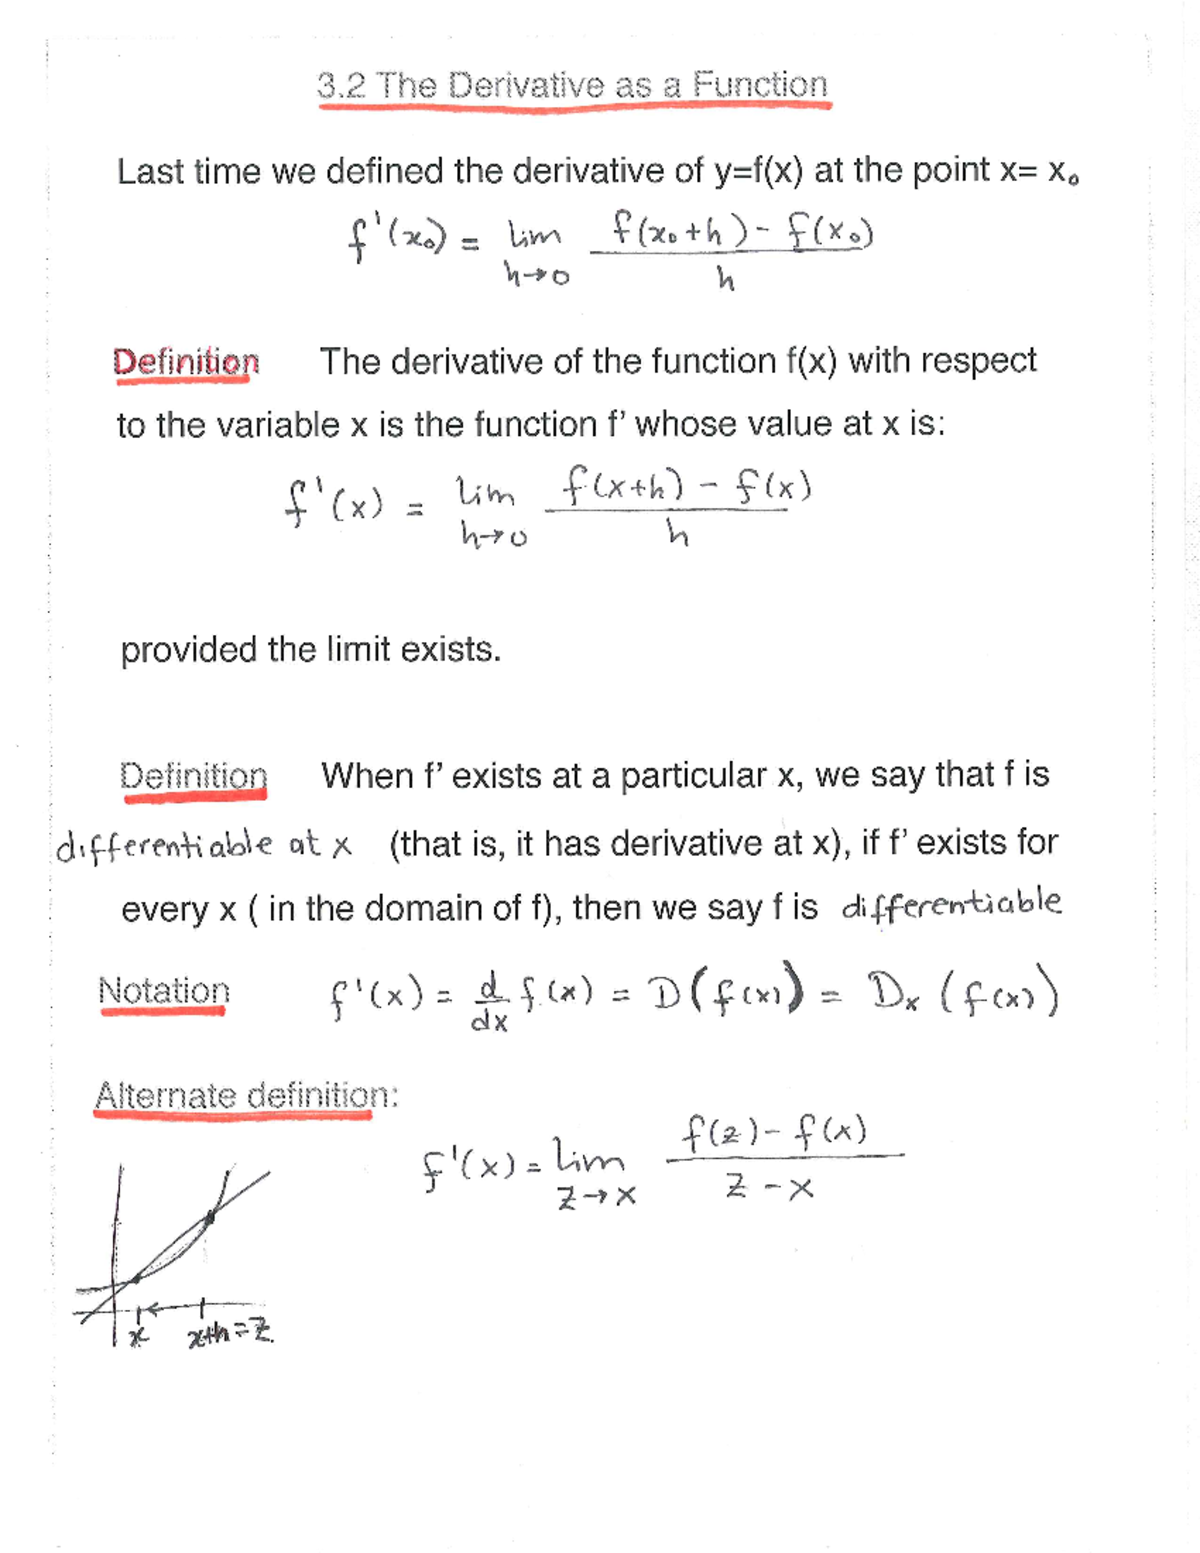 3.2 The Derivative as a Function
Last time we defined the derivative of y=f(x) at the point x= x₀
f'(x₀) = lim h→0 (f(x₀+h) - f(x₀)) / h
Definition The derivative of the function f(x) with respect
to the variable x is the function f' whose value at x is:
f'(x) = lim h→0 (f(x+h) - f(x)) / h
provided the limit exists.
Definition When f' exists at a particular x, we say that f is
differentiable at x (that is, it has derivative at x), if f' exists for
every x ( in the domain of f), then we say f is differentiable
Notation f'(x) = d/dx f(x) = D(f(x)) = Dₓ (f(x))
Alternate definition:
f'(x) = lim z→x (f(z) - f(x)) / z - x
x x+h=z